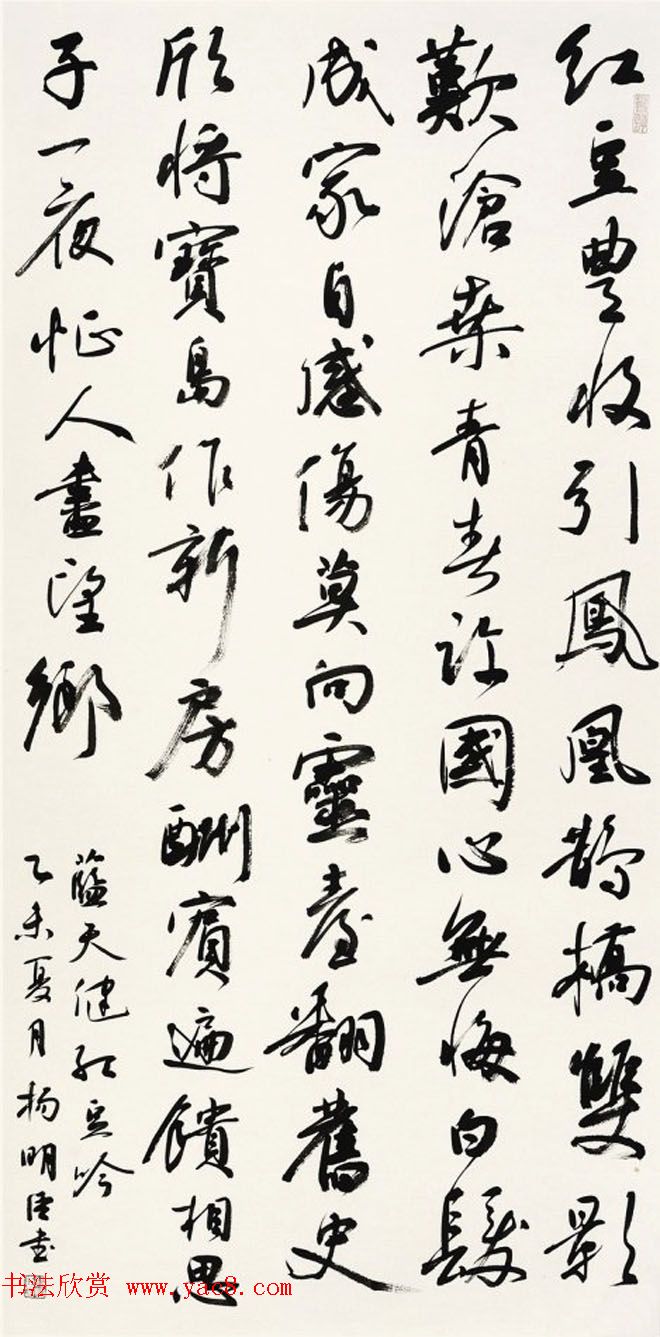 紅豆豐收引鳳凰鵲橋雙影
歎滄桑青春許國心無悔白髮
成家自感傷莫向靈臺翻舊史
欣將寶島作新房酬賓遍饋相思
子一夜征人盡望鄉
藍天健紅豆吟
乙未夏月楊明臣書
书法欣赏 www.yac8.com